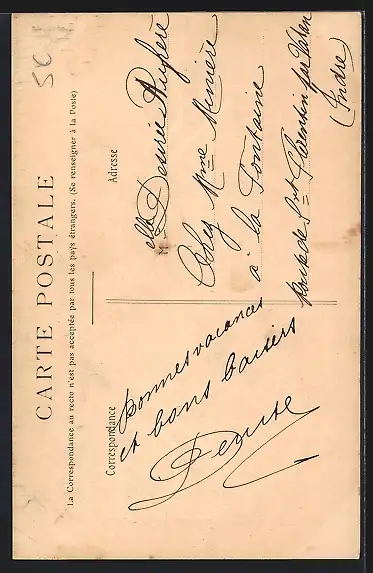 CARTE POSTALE
La Correspondance au recto n'est pas acceptée par tous les pays étrangers. (Se renseigner à la Poste)
Correspondance
Bonnes vacances
et bons baisers
Denise
Adresse
elle Desirée
Chez Mme
à la Fontaine
Route de St Florentin par Vatan
(Indre)
5C